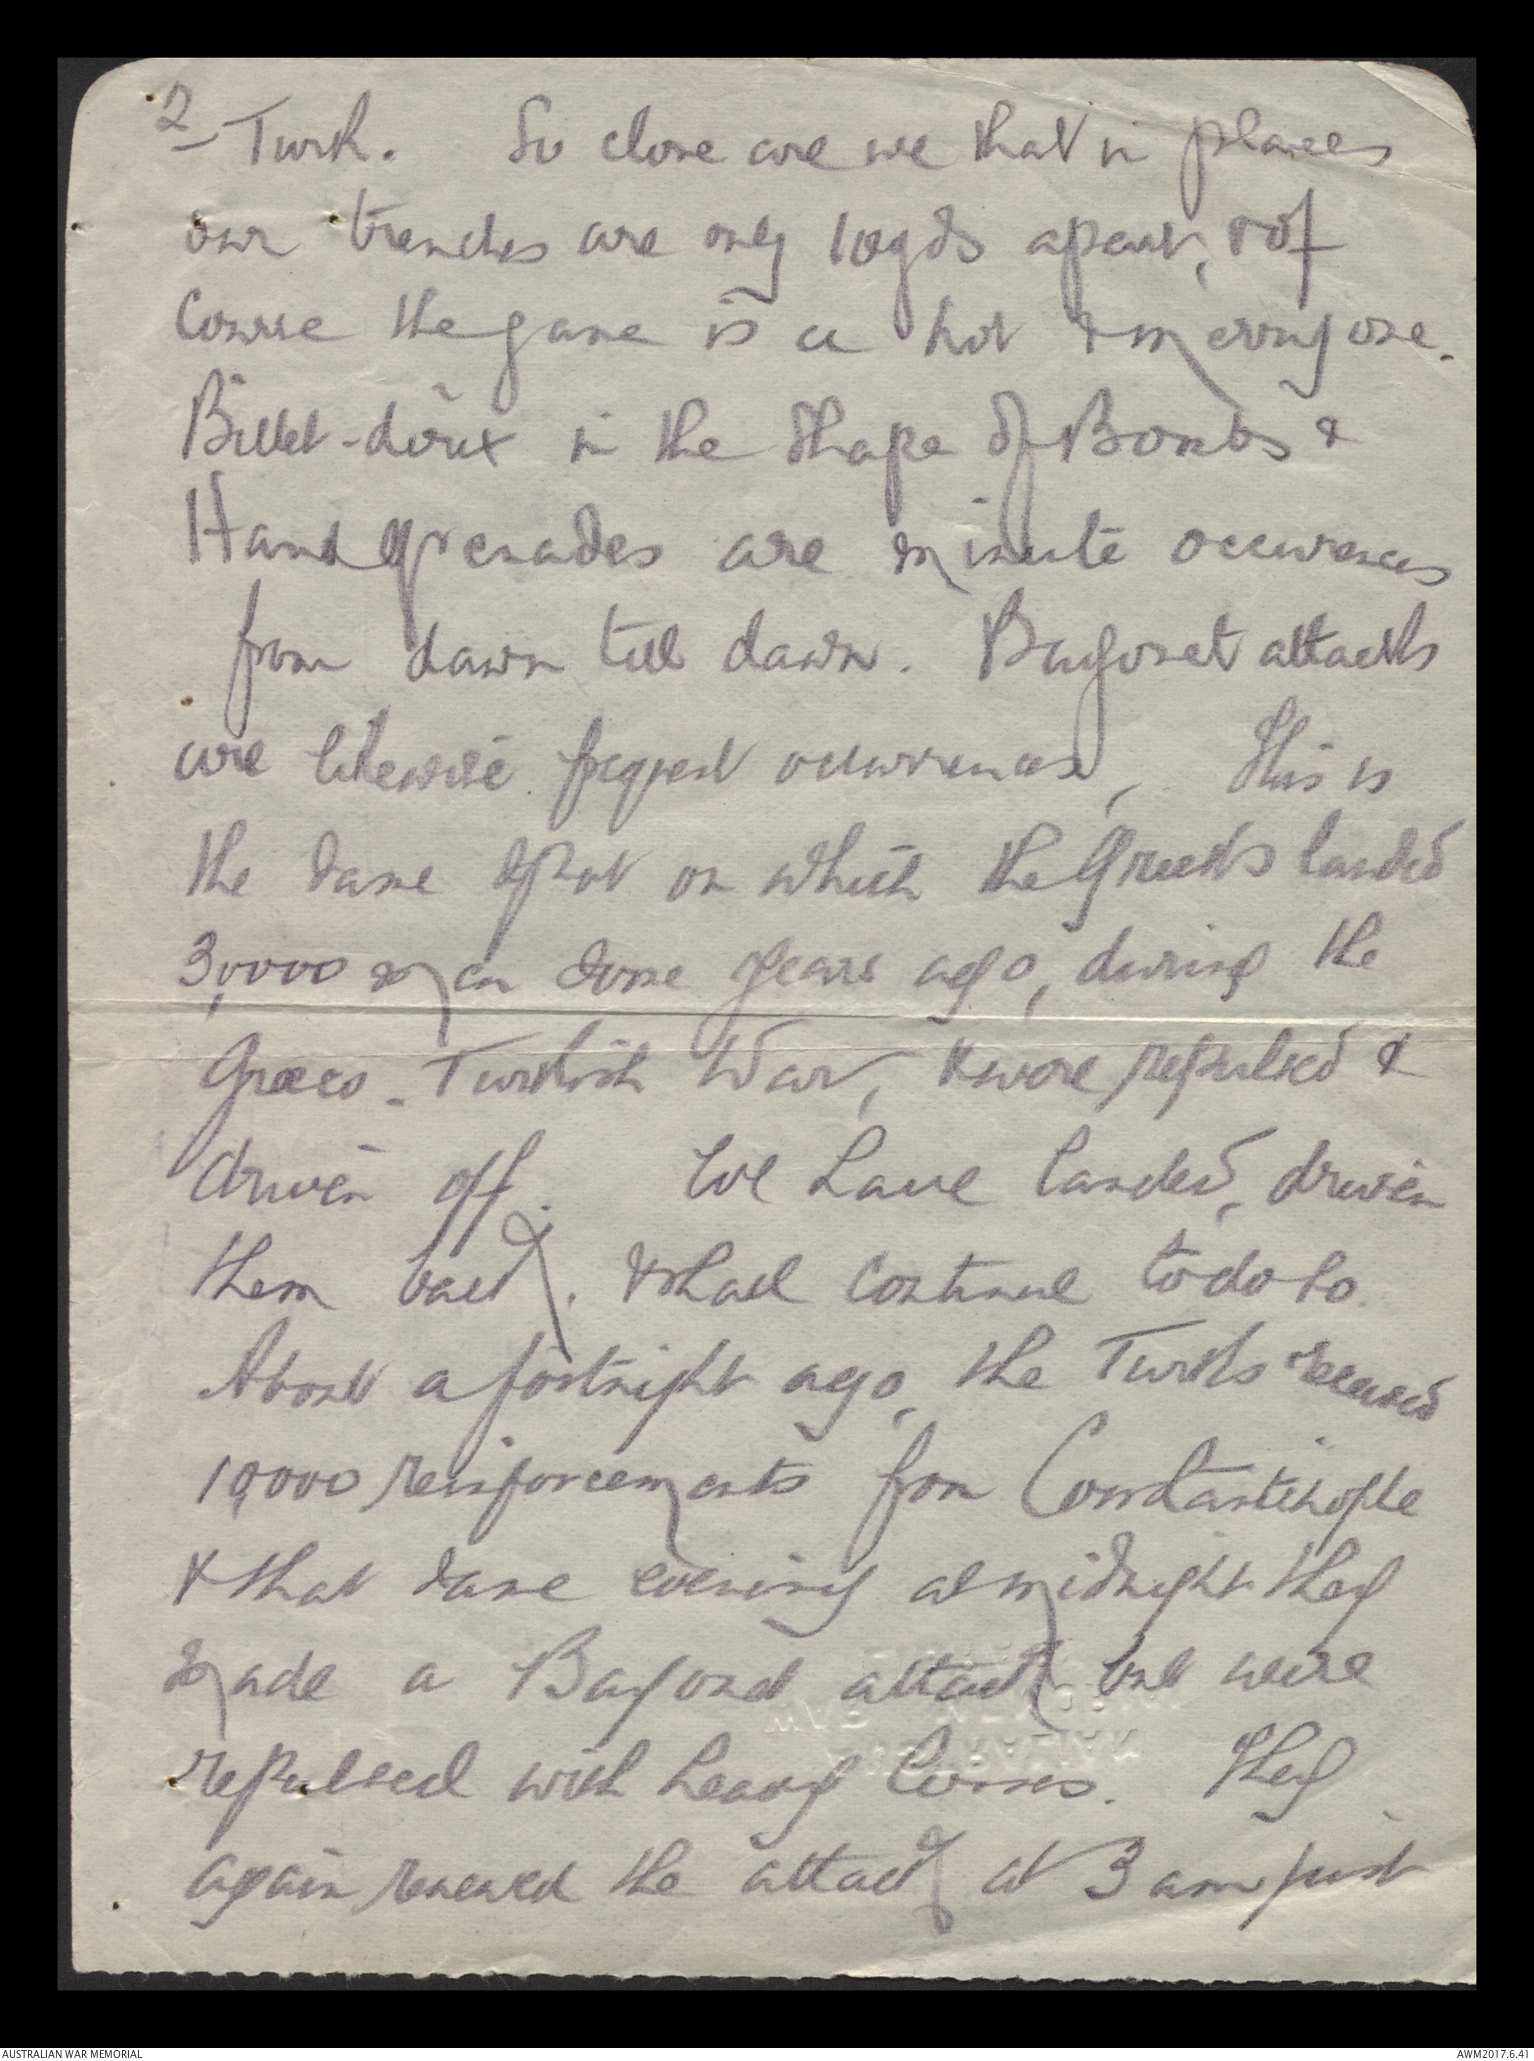 2 Turk. So close are we that in places
our trenches are only 10yds apart, & of
course the game is a hot & merry one.
Billet-doux in the shape of Bombs &
Hand grenades are minute occurences
from dawn till dawn. Bayonet attacks
are likewise frequent occurrences, This is
the same spot on which the Greeks landed
30,000 men some years ago, during the
Graeco-Turkish War, & were repulsed &
driven off. We have landed, driven
them back, & shall continue to do so.
About a fortnight ago, the Turks received
10,000 reinforcements from Constantinople
& that same evening at midnight they
made a Bayonet attack but were
repulsed with heavy losses. They
again renewed the attack at 3 am just
AUSTRALIAN WAR MEMORIAL
AWM2017.6.41